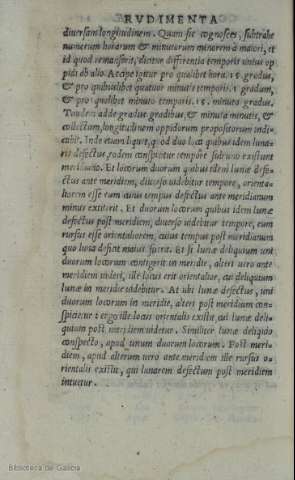 RVDIMENTA
diuersam longitudinem. Quam sic cognosces, subtrahe
numerum horarum & minutorum minorem à maiori, et
id quod remanserit, dicitur differentia temporis vnius op
pidi ab alio. Accipe igitur pro qualibet hora. 15. gradus,
& pro quibuslibet quatuor minutis temporis. 1. gradum,
& pro quolibet minuto temporis. 15. minuta gradus.
Tandem adde gradus gradibus, & minuta minutis, &
collectum, longitudinem oppidorum propositorum indi-
cabit. Inde etiam liquet, quòd duo loca quibus idem luna-
ris defectus, eodem conspicitur tempore sub vno existunt
meridiano. Et locorum duorum quibus idem lunæ defe-
ctus ante meridiem, diuerso videbitur tempore, orienta-
liorem esse eum cuius tempus defectus ante meridianum
minus extiterit. Et duorum locorum quibus idem lunæ
defectus post meridiem, diuerso videbitur tempore, eum
rursus esse orientaliorem, cuius tempus post meridianum
quo luna deficit maius fuerit. Et si lunæ deliquium vni
duorum locorum contigerit in meridie, alteri uero ante
meridiem uideri, ille locus erit orientalior, cui deliquium
lunæ in meridie videbitur. At ubi lunæ defectus, vni
duorum locorum in meridie, alteri post meridiem con-
spicietur: ergo ille locus orientalis existit, cui lunæ deli-
quium post meridiem videtur. Similiter lunæ deliquio
conspecto, apud vnum duorum locorum. Post meri-
diem, apud alterum uero ante meridiem ille rursus o-
rientalis existit, qui lunarem defectum post meridiem
intuetur.
Biblioteca de Galicia